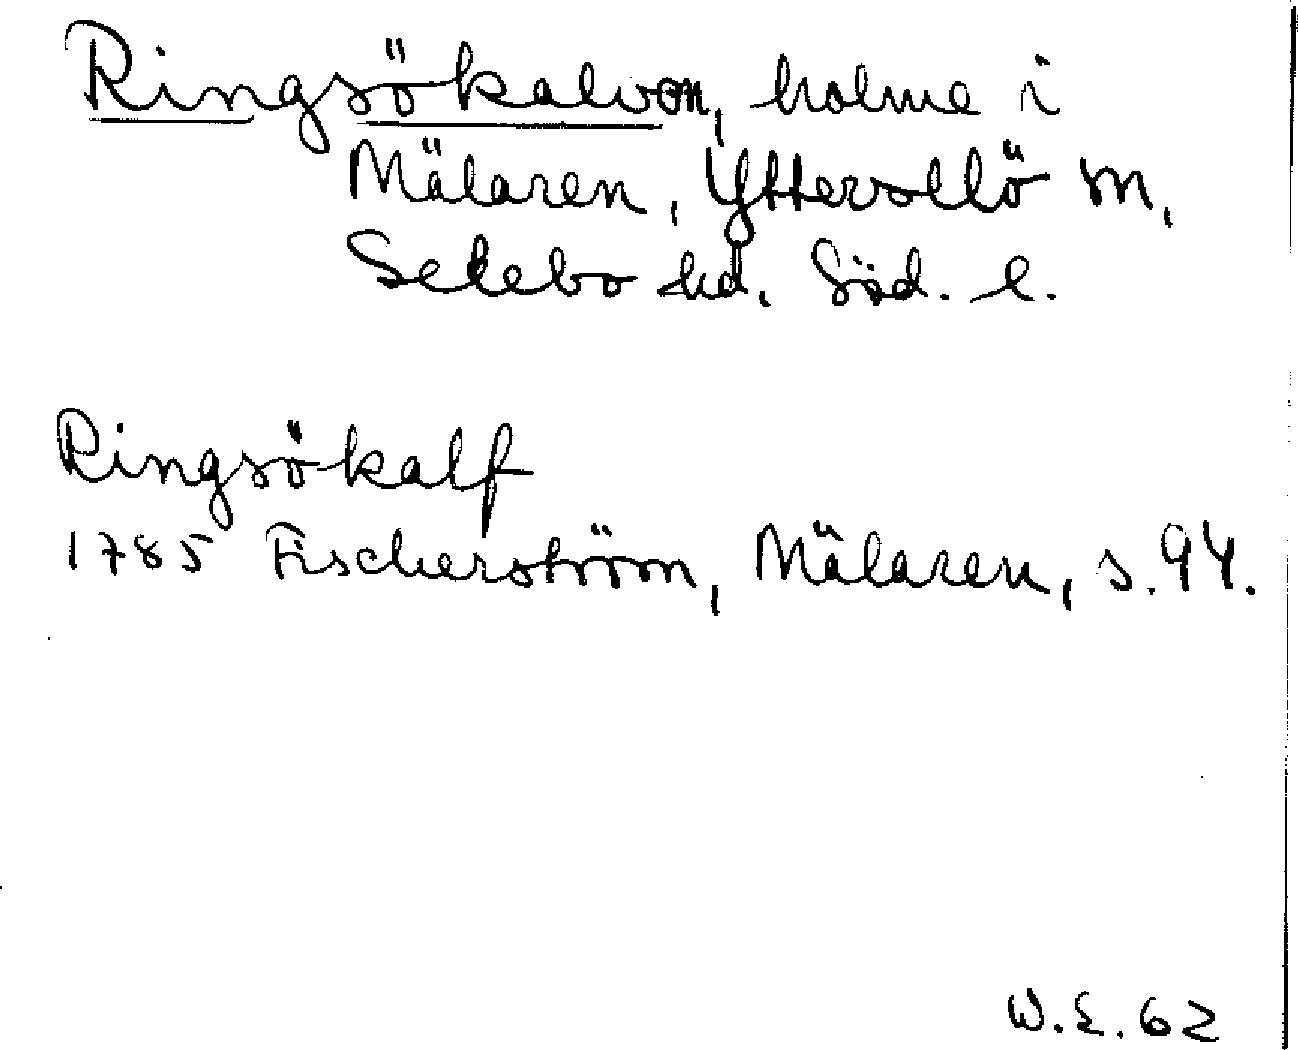 Ringsökalvon, holme i
Mälaren, Ytterselö sn,
Selebo hd. Söd. l.
Ringsökalf
1785 Fischerström, Mälaren, s. 94.
W.E. 62